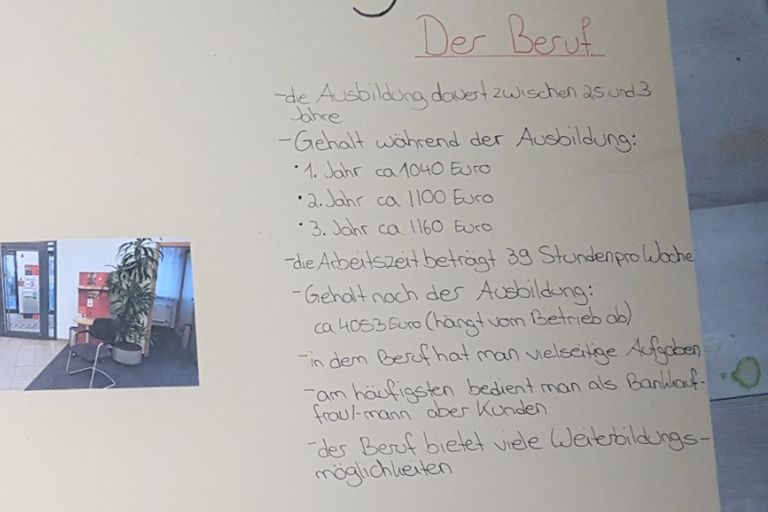 Der Beruf
-die Ausbildung dauert zwischen 2,5 und 3
Jahre
-Gehalt während der Ausbildung:
• 1. Jahr ca 1040 Euro
• 2. Jahr ca 1100 Euro
• 3. Jahr ca 1160 Euro
-die Arbeitszeit beträgt 39 Stunden pro Woche
-Gehalt nach der Ausbildung:
ca 4053 Euro (hängt vom Betrieb ab)
-in dem Beruf hat man vielseitige Aufgaben
-am häufigsten bedient man als Bankkauf-
frau/-mann aber Kunden
-der Beruf bietet viele Weiterbildungs-
möglichkeiten